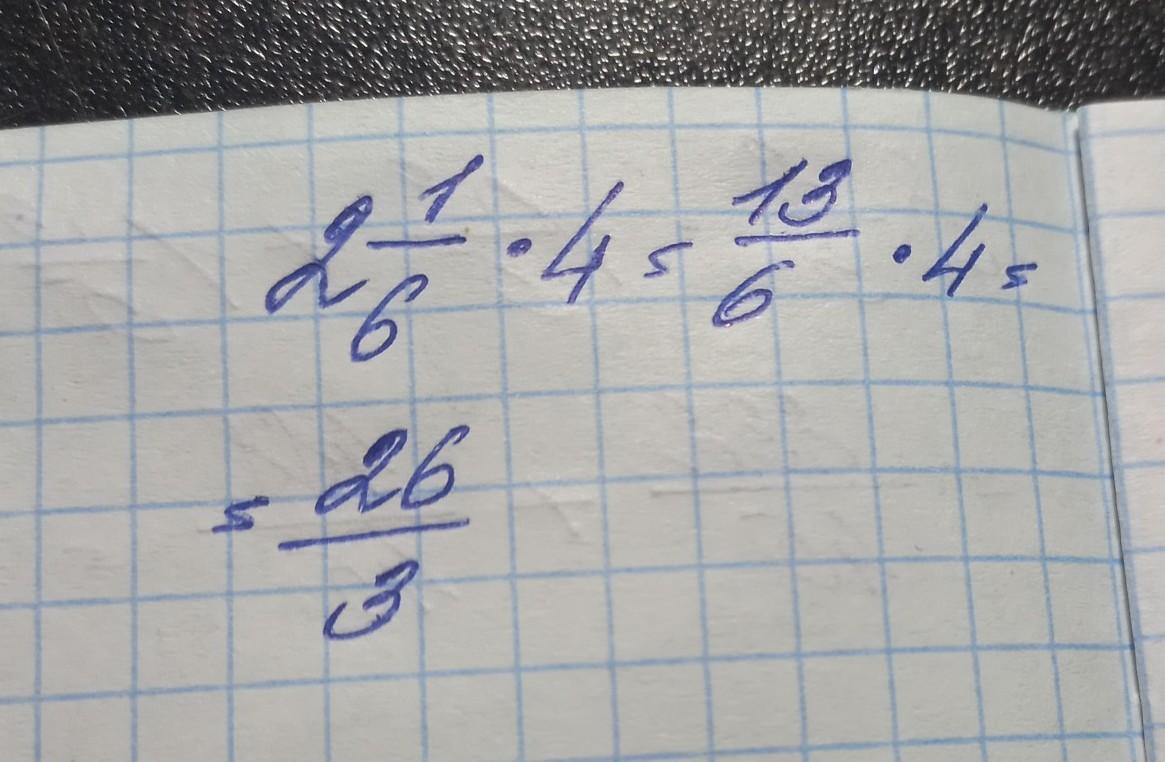 2 1/6 · 4 = 13/6 · 4 =
= 26/3